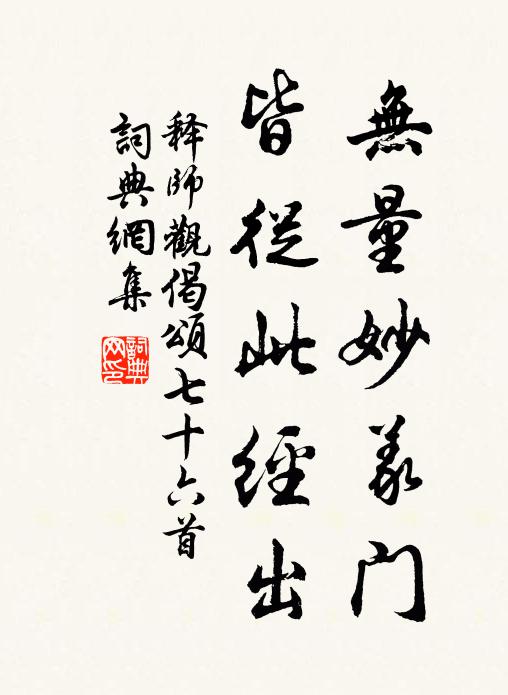 無量妙義門
皆從此經出
释師觀偈頌七十六首
詞典網集
詞典網印